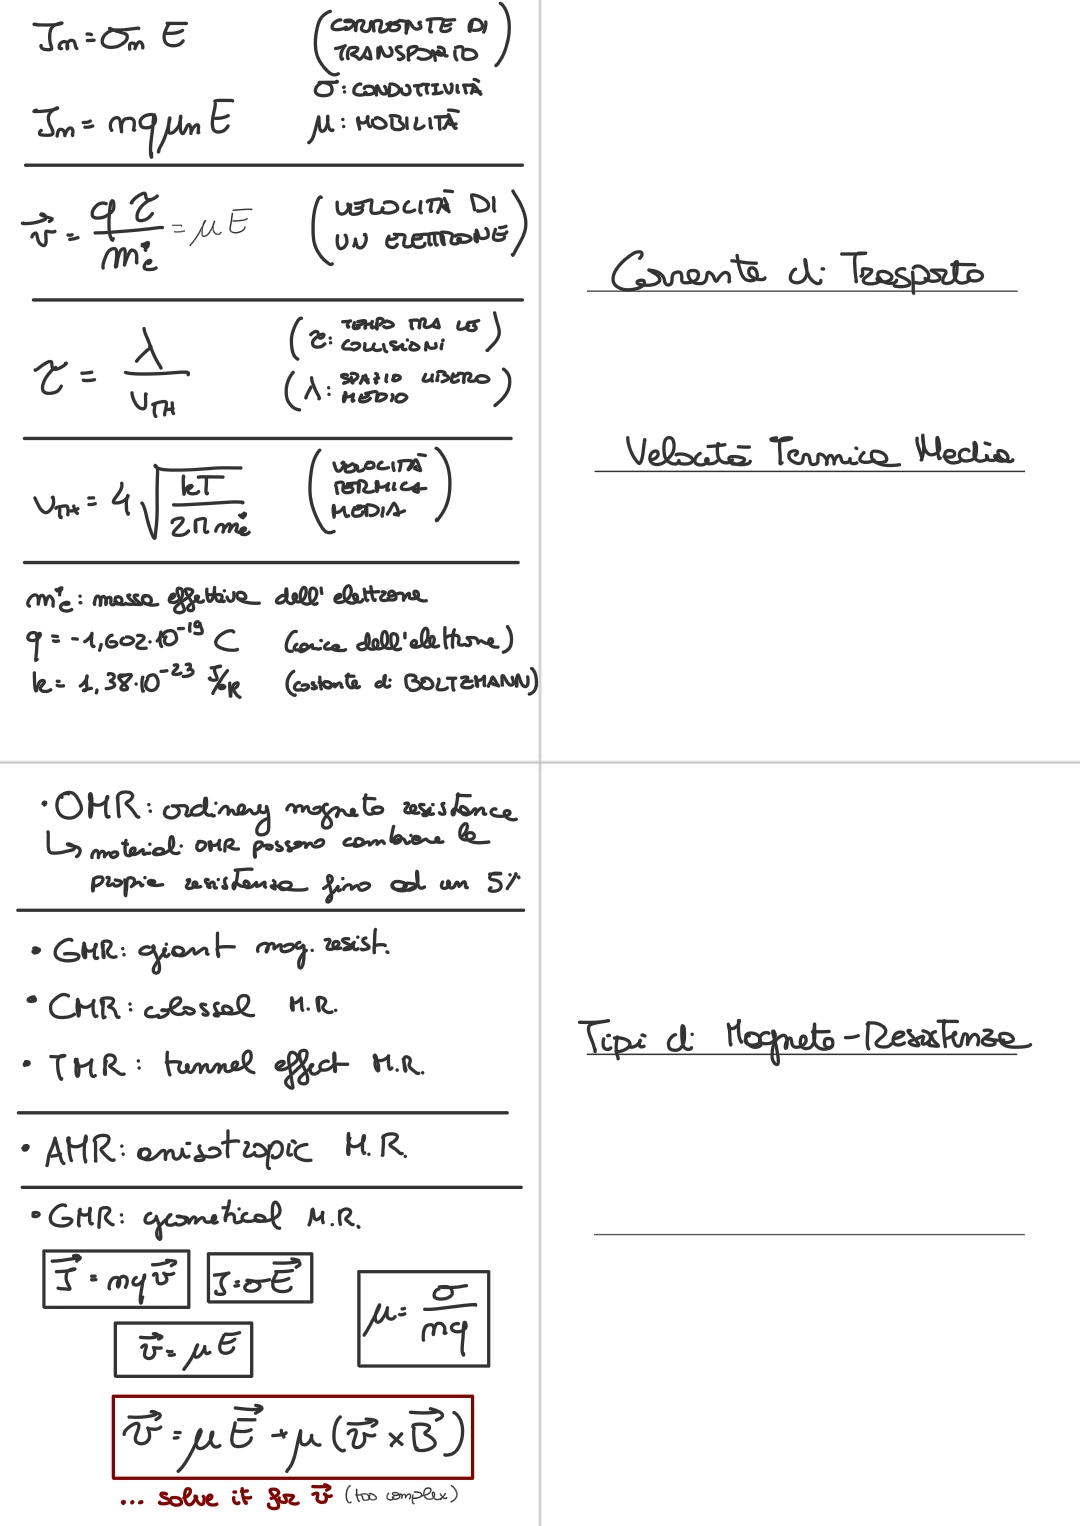 Jn = σn E
(CORRENTE DI
TRANSPORTO)
σ: CONDUTTIVITÀ
Jn = nqμn E
μ: MOBILITÀ
v⃗ = qτ/m*e = μE
(VELOCITÀ DI
UN ELETTRONE)
τ = λ/vTH
(τ: TEMPO TRA LE
COLLISIONI)
(λ: SPAZIO LIBERO
MEDIO)
vTH = 4 √(kT/2π m*e)
(VELOCITÀ
TERMICA
MEDIA)
m*e: massa effettiva dell'elettrone
q = -1,602·10⁻¹⁹ C (carica dell'elettrone)
k = 1,38·10⁻²³ J/°K (costante di BOLTZMANN)
Corrente di Trasporto
Velocità Termica Media
• OMR: ordinery magneto resistence
↳ materiali OMR possono cambiare la
propria resistenza fino ad un 5%
• GMR: giant mag. resist.
• CMR: colossal M.R.
• TMR: tunnel effect M.R.
• AMR: anisotropic M.R.
• GMR: geometical M.R.
J⃗ = nqv⃗
J = σE⃗
μ = σ/nq
v⃗ = μE
v⃗ = μE⃗ + μ(v⃗ × B⃗)
... solve it for v⃗ (too complex)
Tipi di Magneto-Resistenza